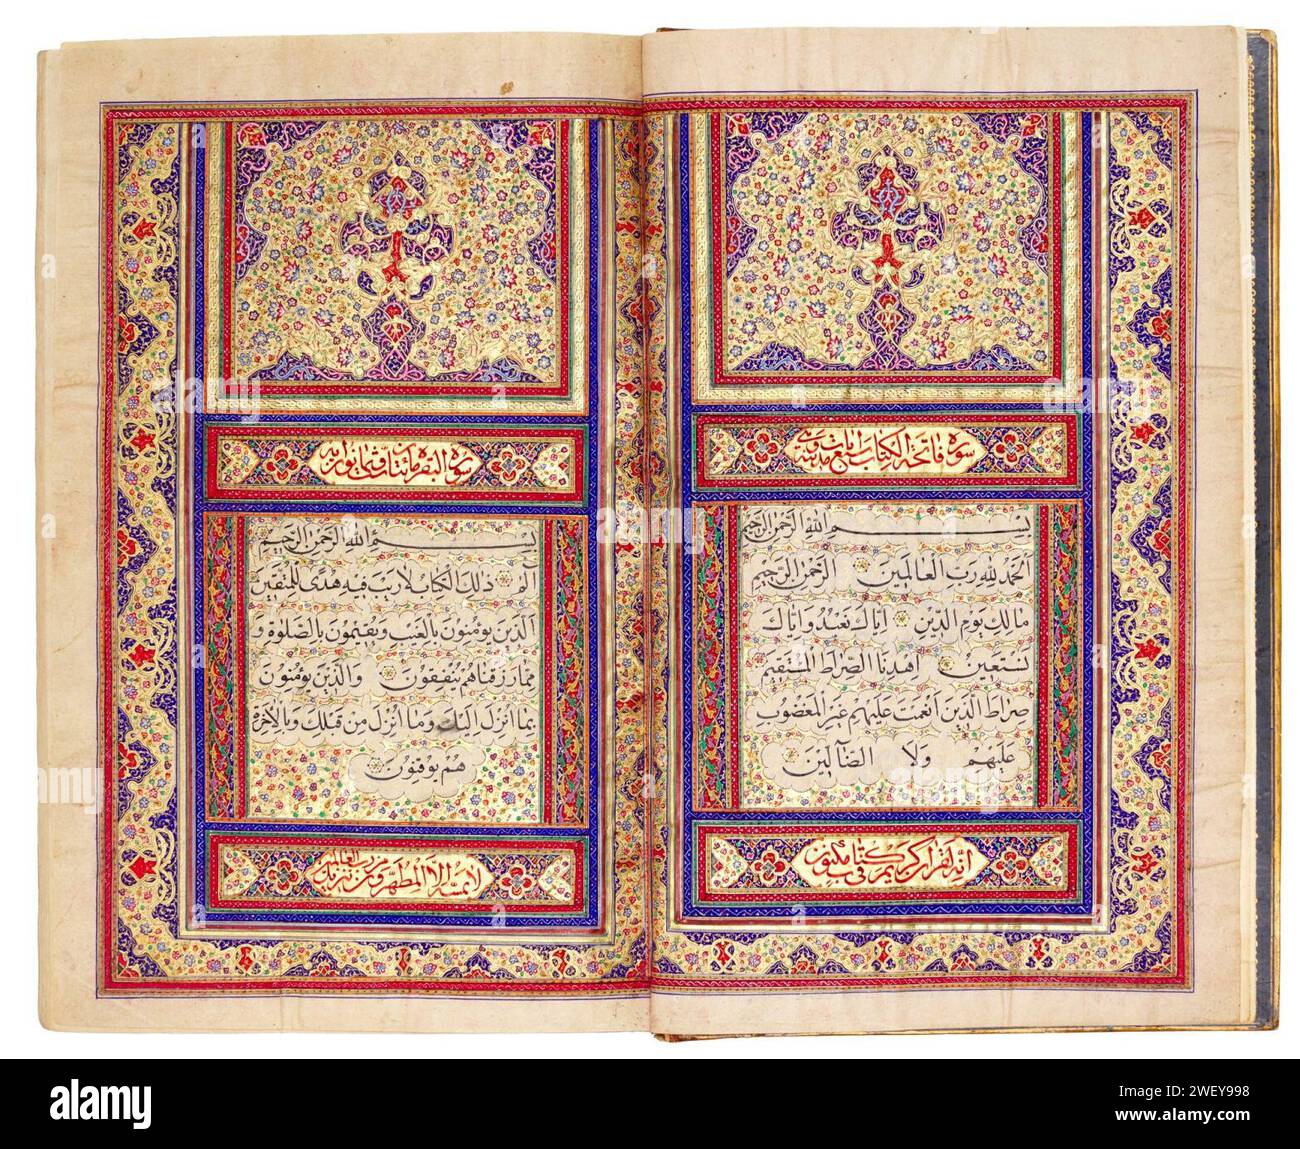 سورة فاتحة الكتاب سبع آيات
بسم الله الرحمن الرحيم
الحمد لله رب العالمين الرحمن الرحيم
مالك يوم الدين اياك نعبد واياك
نستعين اهدنا الصراط المستقيم
صراط الذين انعمت عليهم غير المغضوب
عليهم ولا الضآلين
انه لقران كريم في كتاب مكنون
سورة البقره مائتان وثمانون
بسم الله الرحمن الرحيم
الم ذلك الكتاب لا ريب فيه هدى للمتقين
الذين يؤمنون بالغيب ويقيمون الصلوة و
مما رزقناهم ينفقون والذين يؤمنون
بما انزل اليك وما انزل من قبلك وبالاخرة
هم يوقنون
لا يمسه الا المطهرون تنزيل من رب العالمين
alamy
Image ID: 2WEY998
www.alamy.com